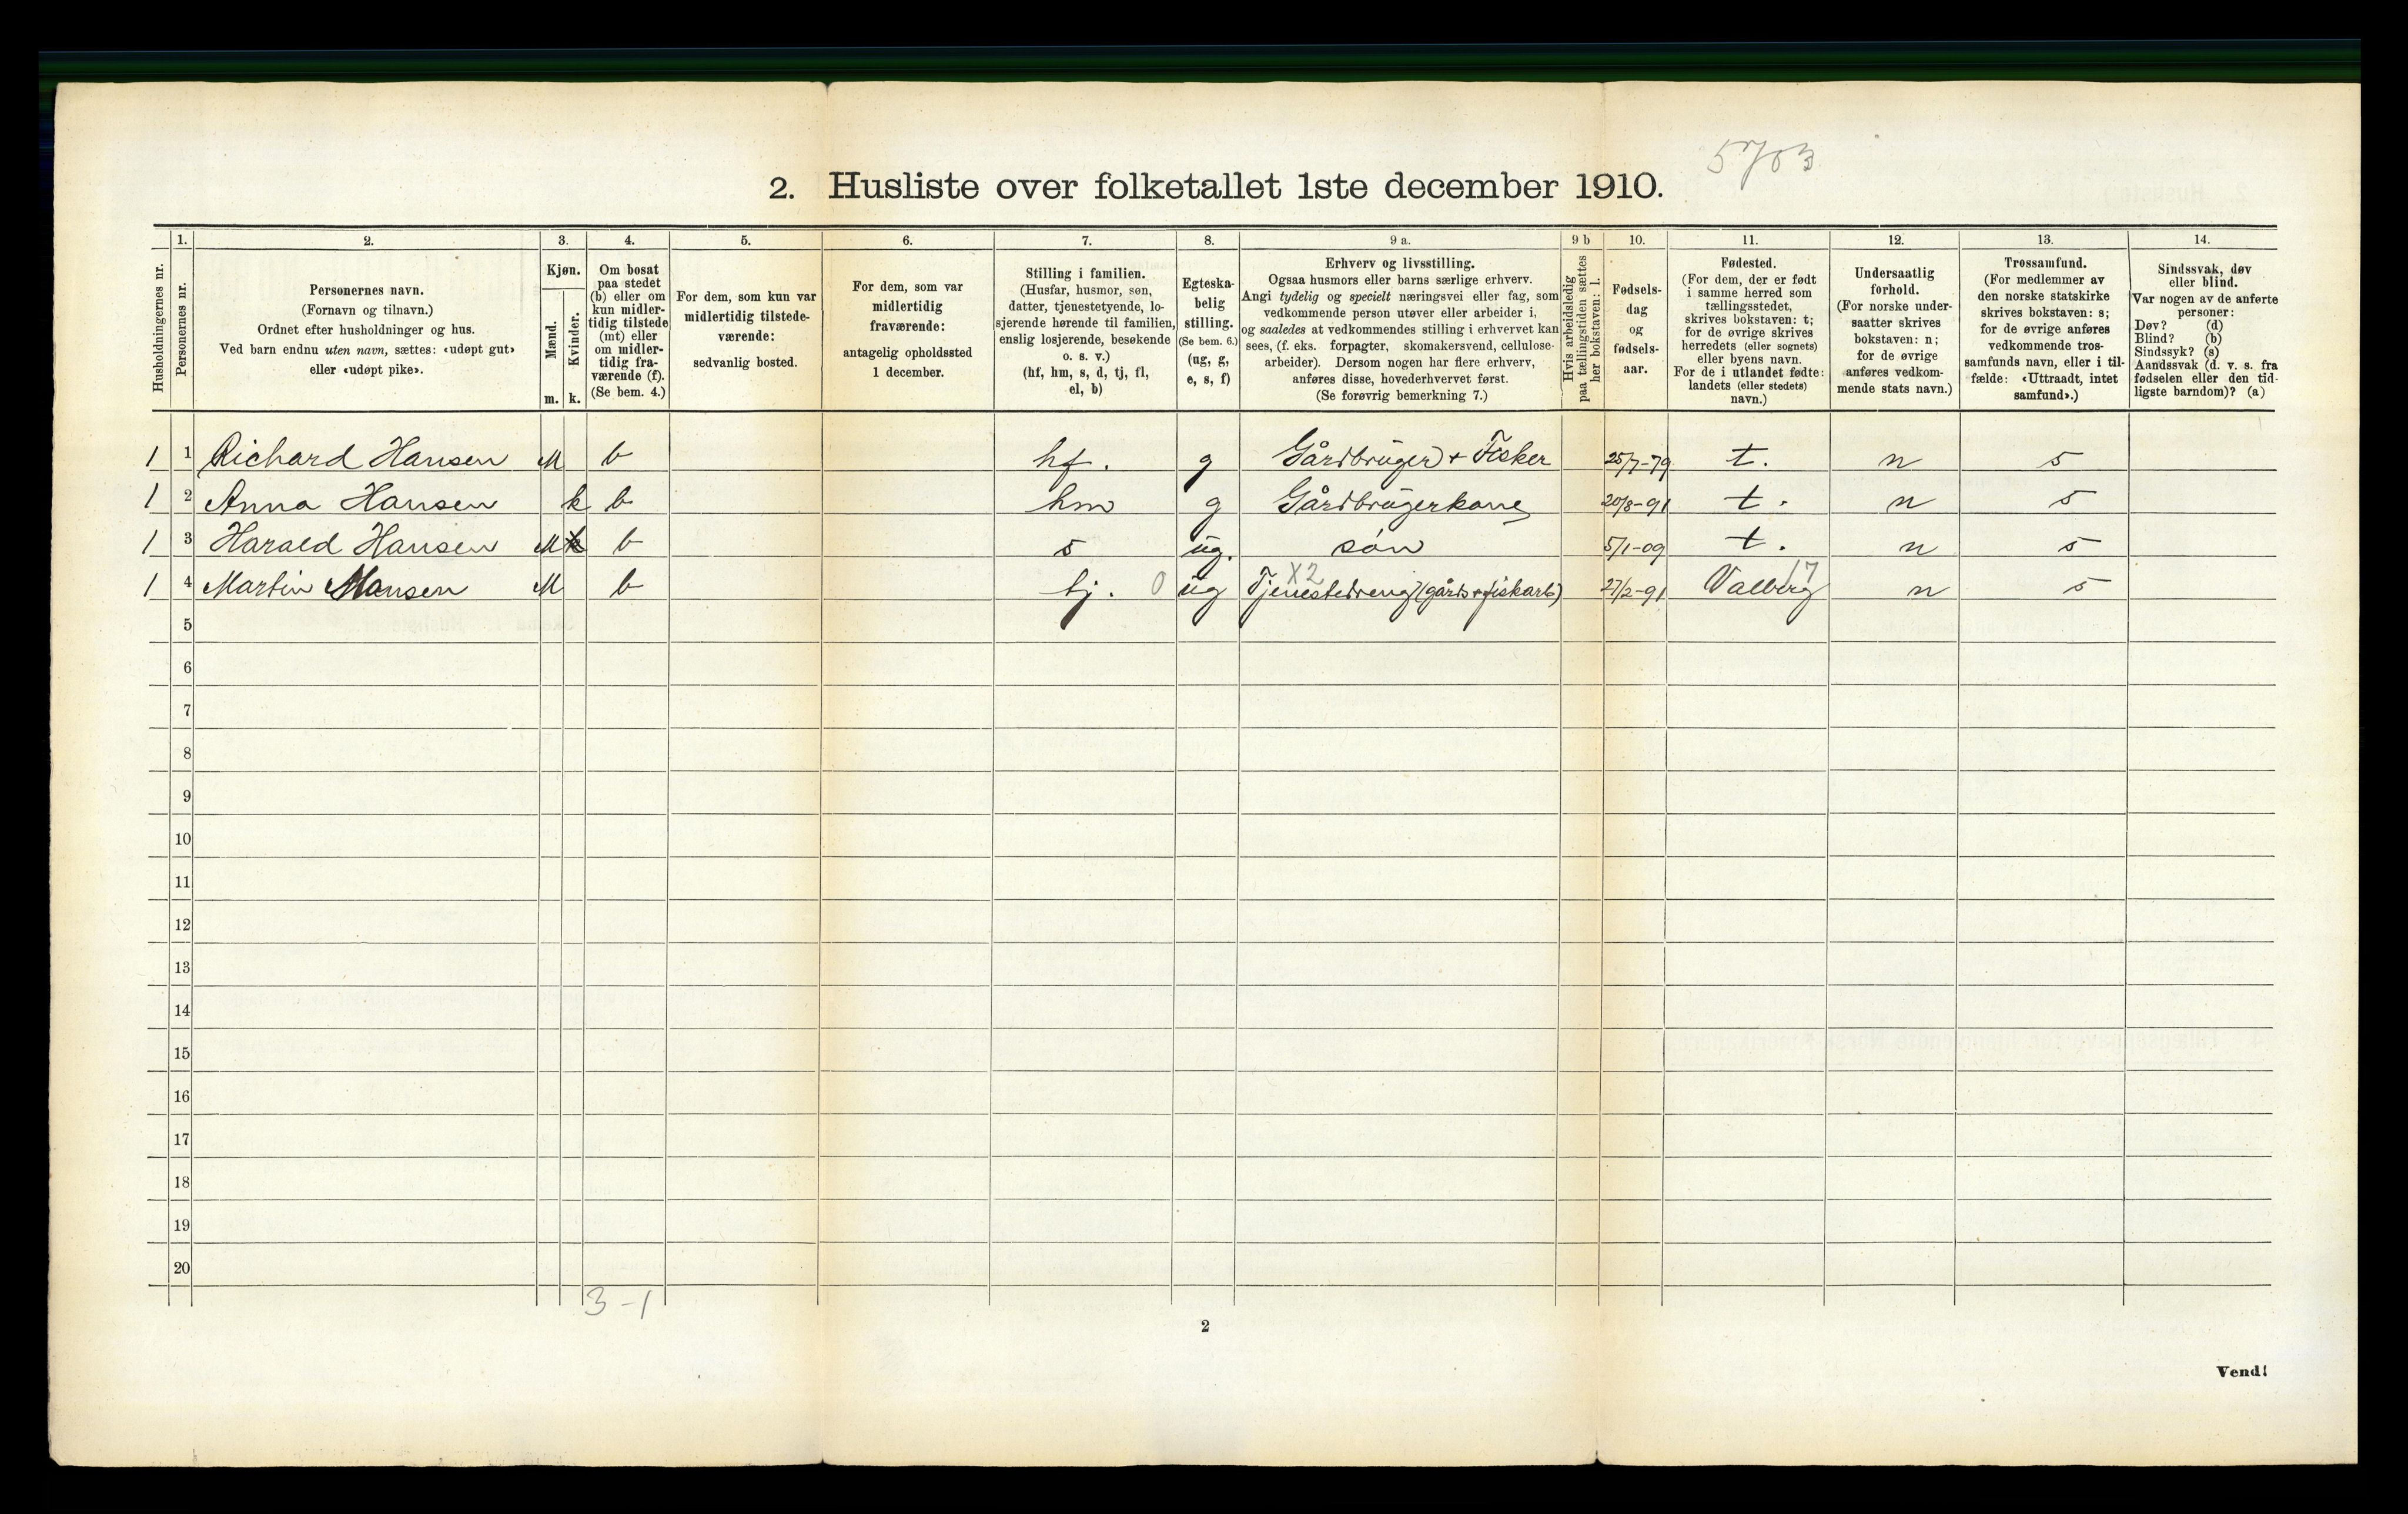 5703
2. Husliste over folketallet 1ste december 1910.
Husholdningernes nr.
1.
Personernes nr.
2.
Personernes navn.
(Fornavn og tilnavn.)
Ordnet efter husholdninger og hus.
Ved barn endnu uten navn, sættes: «udøpt gut»
eller «udøpt pike».
3.
Kjøn.
Mænd.
Kvinder.
m. k.
4.
Om bosat
paa stedet
(b) eller om
kun midler-
tidig tilstede
(mt) eller
om midler-
tidig fra-
værende (f).
(Se bem. 4.)
5.
For dem, som kun var
midlertidig tilstede-
værende:
sedvanlig bosted.
6.
For dem, som var
midlertidig
fraværende:
antagelig opholdssted
1 december.
7.
Stilling i familien.
(Husfar, husmor, søn,
datter, tjenestetyende, lo-
sjerende hørende til familien,
enslig losjerende, besøkende
o. s. v.)
(hf, hm, s, d, tj, fl,
el, b)
8.
Egteska-
belig
stilling.
(Se bem. 6.)
(ug, g,
e, s, f)
9 a.
Erhverv og livsstilling.
Ogsaa husmors eller barns særlige erhverv.
Angi tydelig og specielt næringsvei eller fag, som
vedkommende person utøver eller arbeider i,
og saaledes at vedkommendes stilling i erhvervet kan
sees, (f. eks. forpagter, skomakersvend, cellulose-
arbeider). Dersom nogen har flere erhverv,
anføres disse, hovederhvervet først.
(Se forøvrig bemerkning 7.)
9 b
Hvis arbeidsledig
paa tællingstiden sættes
her bokstaven: l.
10.
Fødsels-
dag
og
fødsels-
aar.
11.
Fødested.
(For dem, der er født
i samme herred som
tællingsstedet,
skrives bokstaven: t;
for de øvrige skrives
herredets (eller sognets)
eller byens navn.
For de i utlandet fødte:
landets (eller stedets)
navn.)
12.
Undersaatlig
forhold.
(For norske under-
saatter skrives
bokstaven: n;
for de øvrige
anføres vedkom-
mende stats navn.)
13.
Trossamfund.
(For medlemmer av
den norske statskirke
skrives bokstaven: s;
for de øvrige anføres
vedkommende tros-
samfunds navn, eller i til-
fælde: «Uttraadt, intet
samfund».)
14.
Sindssvak, døv
eller blind.
Var nogen av de anførte
personer:
Døv? (d)
Blind? (b)
Sindssyk? (s)
Aandssvak (d. v. s. fra
fødselen eller den tid-
ligste barndom)? (a)
1 1 Richard Hansen M b hf. g Gårdbrüger + Fisker 25/7-79 t. n s
1 2 Anna Hansen k b hm g Gårdbrügerkone 20/8-91 t. n s
1 3 Harald Hansen M k b s üg. søn 5/1-09 t. n s
X2 17
1 4 Martin Hansen M b tj. 0 üg Tjenestedreng (gårds + fiskarb) 27/2-91 Valberg n s
5
6
7
8
9
10
11
12
13
14
15
16
17
18
19
20
3-1
2
Vend!